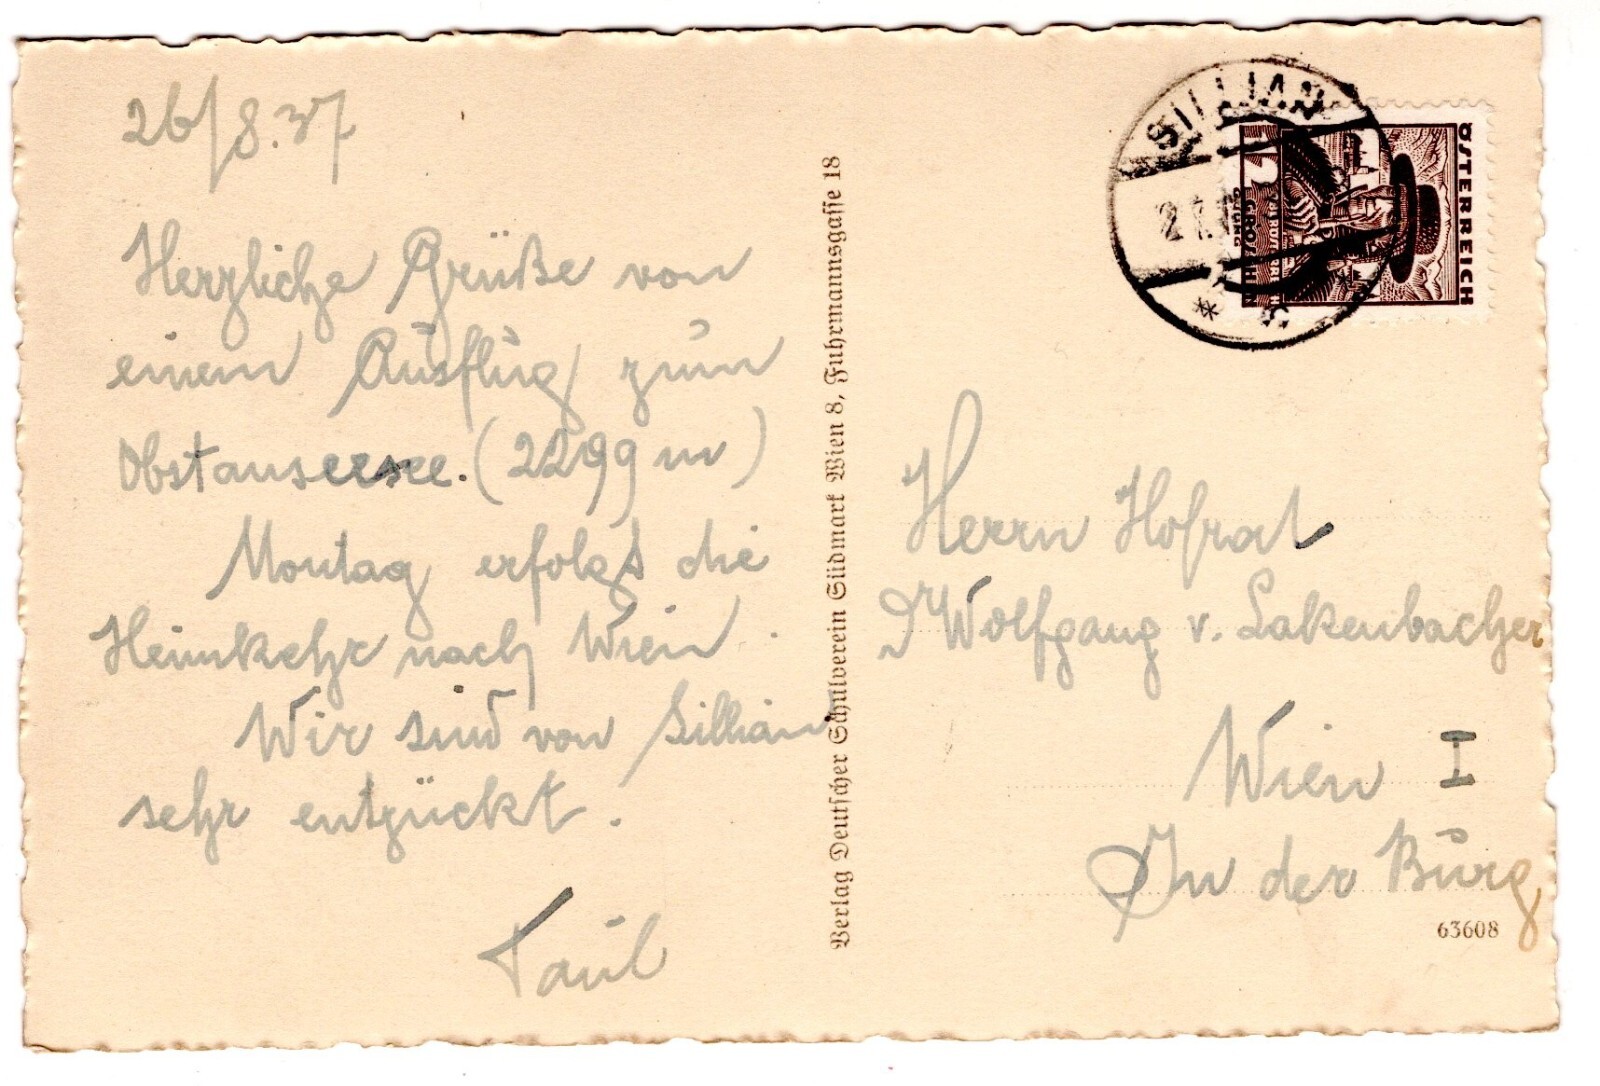 26/8.37
Herzliche Grüße von
einem Ausflug zum
Obstansersee. (2299 m)
Montag erfolgt die
Heimkehr nach Wien.
Wir sind von Sillian
sehr entzückt.
Paul
Verlag Deutscher Schulverein Südmark Wien 8, Fuhrmannsgasse 18
SILLIAN
ÖSTERREICH
1
GROSCHEN
Herrn Hofrat
Wolfgang v. Lakenbacher
Wien I
In der Burg
63608